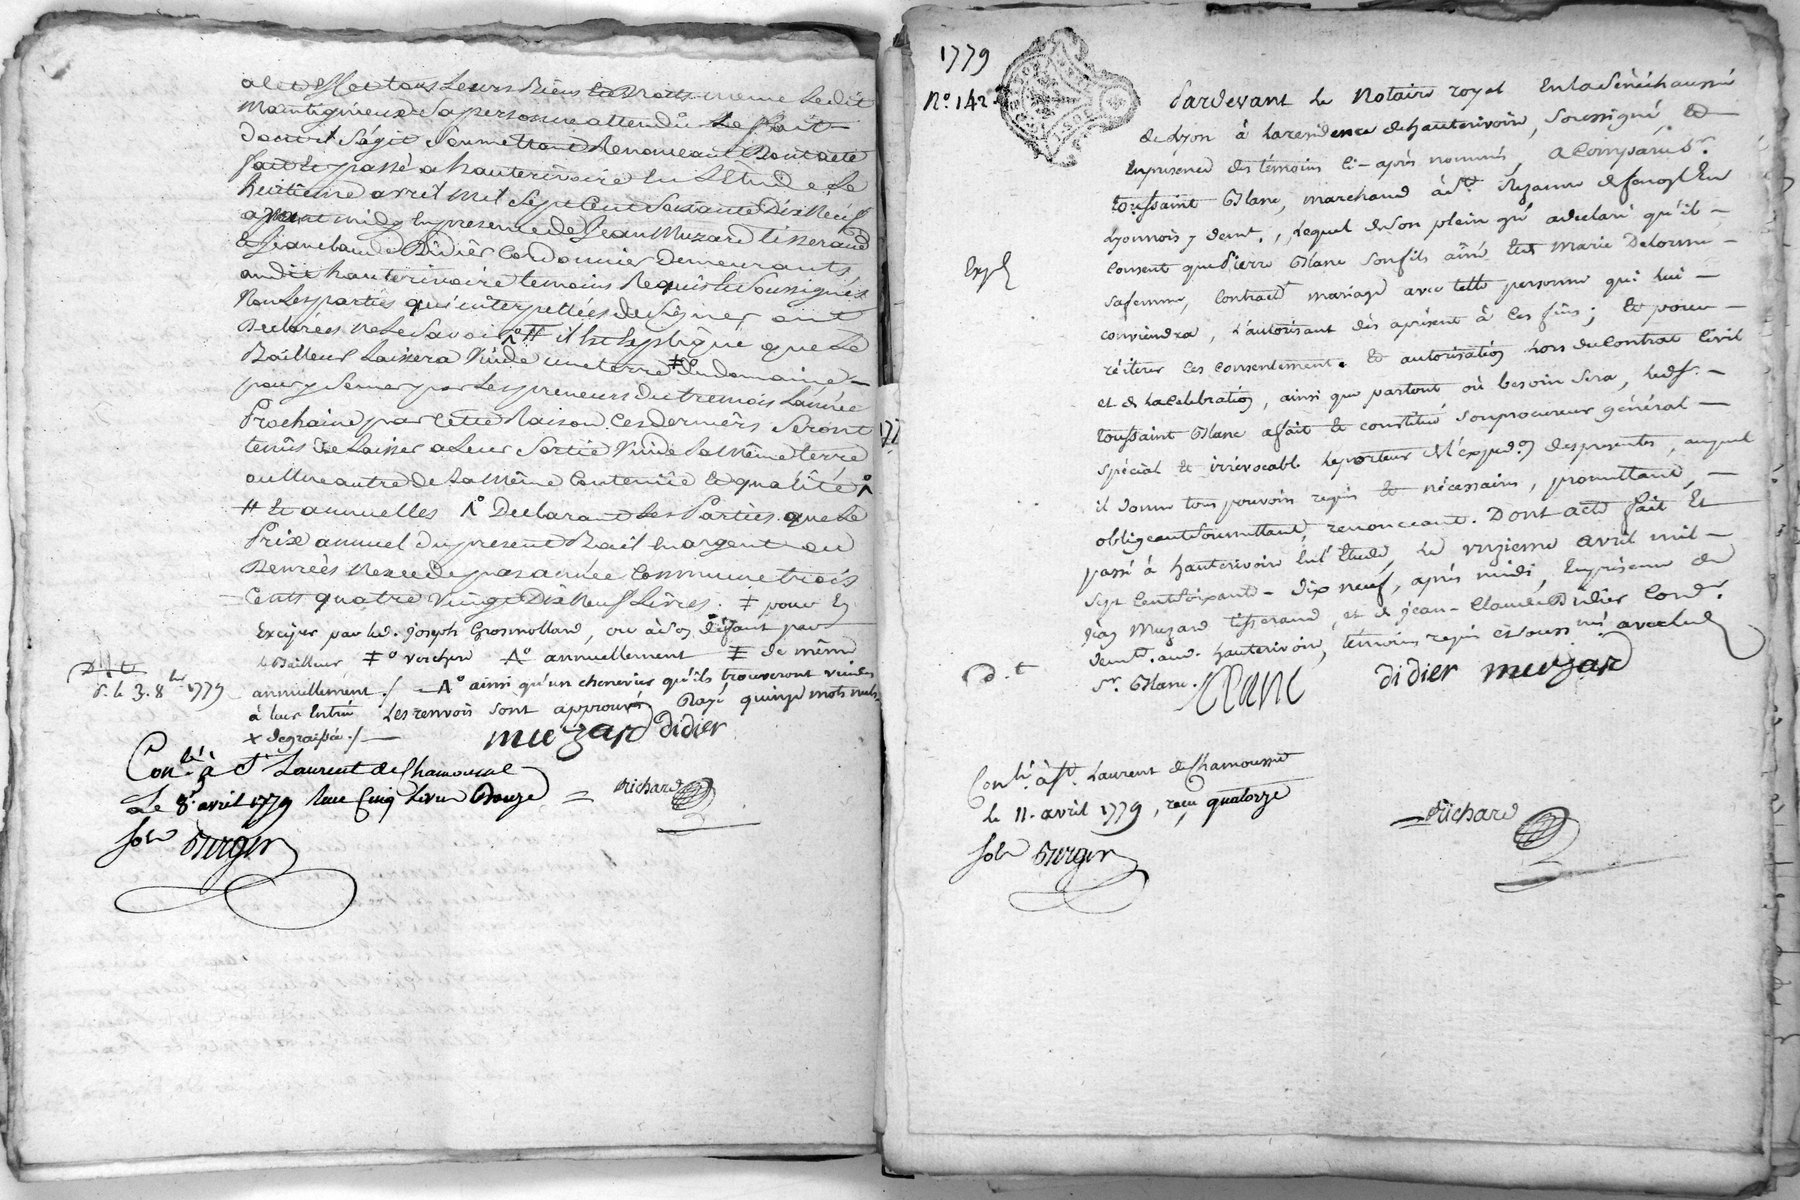 a cet Effet tous Leurs Biens et Droits meme Ledit
Montignieux Sa personne attendû Le fait
dont il S'agit Soumettant Renonceant Dont acte
fait et passé a hauterivoire En L'Etude Le
huitieme avril Mil Sept Cent Soixante Dix Neuf
avant midy En presence de Jean Muzard tisserand
et Jean claude Didier Cordonnier Demeurants
audit hauterivoire temoins Requis et Soussignés
Non Les parties qui interpellées de Signer ont
Declarées ne Le Savoir ^o # il Est Expliqué que Le
Bailleur Laissera Vuide une terre ‡ du domaine —
pour y Semer par Les preneurs du tremois L'année
Prochaine par Cette Raison Ces derniers Seront
tenûs De Laisser a Leur Sortie Vuide La Même terre
ou Une autre de La Même Contenüe Et qualité ^o
# Et annuelles ^o Declarant Les Parties que Le
Prix annuel du present Bail En argent ou
Denrées N'excede pas année Commune trois
Cents quatre Vingt Dix Neuf Livres. ‡ pour En
Exiger par led. Joseph Grosmollard, ou à Son défaut par
le Bailleur ‡o verchere Ao annuellement ‡ de même
D. le 3. 8bre 1779
annuellement ./. — Ao ainsi qu'un chenevier qu'ils trouveront vuides
à leur Entrée Les renvois sont approuvés Rayé quinze mots nuls
x degraissée ./. —
muzard didier
Conlé à St Laurent de Chamousset
Le 8 avril 1779 Reçu Cinq Livres Douze
Sols Berger
Richard
1779
No. 142
Pardevant le Notaire royal En la Sénéchaussée
de Lyon à la residence de hauterivoire, Soussigné, Et
En présence des témoins Ci-après nommés, a Comparu Sr.
toussaint Blanc, marchand à St. Suzanne de fenoyl En
Lyonnois y demt., Lequel de Son plein gré a declaré qu'il —
Expé
Consent que Pierre Blanc Son fils aîné Et Marie Delorme —
Sa femme, Contracte mariage avec telle personne qui lui —
conviendra, L'autorisant dès aprésent à Ces fins; Et pour —
réiterer Ces consentement. Et autorisation hors du Contrat Civil
et de La Celebration, ainsi que partout où besoin Sera, led. Sr. —
toussaint Blanc a fait Et constitué Son procureur général —
spécial Et irrévocable le porteur de l'expedon des presentes, auquel
il donne tous pouvoirs requis Et nécessaires, promettant, —
obligeant Soumettant, renonceant. Dont acte fait Et
passé à hauterivoire En l'Etude, Le onzieme avril mil —
Sept Cent Soixante - Dix neuf, après midi, En présence de
Jean Muzard tisserand, et de Jean - Claude Didier Cord.r
demts. aud. hauterivoire, témoins requis Et soussignés avec led.
D. t
Sr. Blanc. Blanc didier muzard
Conlé à St. Laurent de Chamousset
le 11. avril 1779, reçu quatorze
Sols Berger
Richard